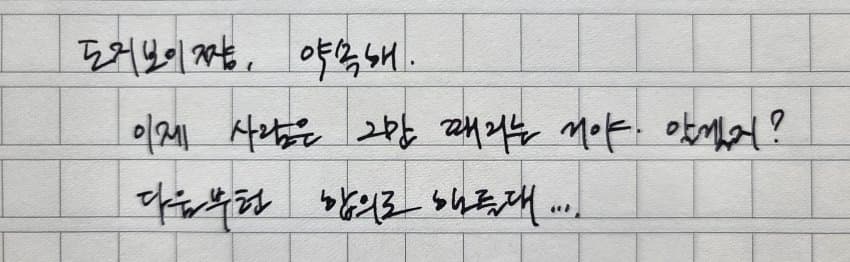 도저보이쨩, 약속해.
이제 사람은 그만 때리는 거야. 알겠지?
다음부턴 합의로 안돼...